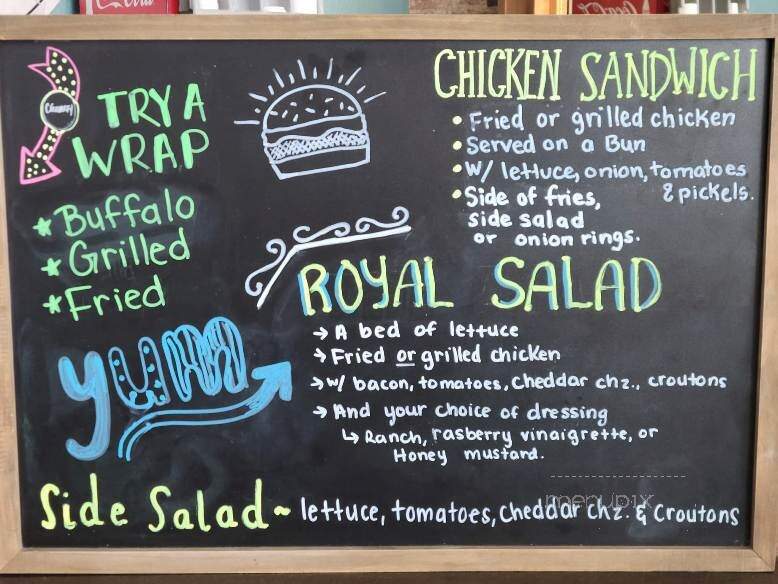 TRY A
WRAP
* Buffalo
* Grilled
* Fried
yumm
CHICKEN SANDWICH
• Fried or grilled chicken
• Served on a Bun
• W/ lettuce, onion, tomatoes
& pickels.
• Side of fries,
side salad
or onion rings.
ROYAL SALAD
→ A bed of lettuce
→ Fried or grilled chicken
→ w/ bacon, tomatoes, Cheddar chz., croutons
→ And your choice of dressing
↳ Ranch, rasberry vinaigrette, or
Honey mustard.
menupix
Side Salad~ lettuce, tomatoes, Cheddar chz. & Croutons